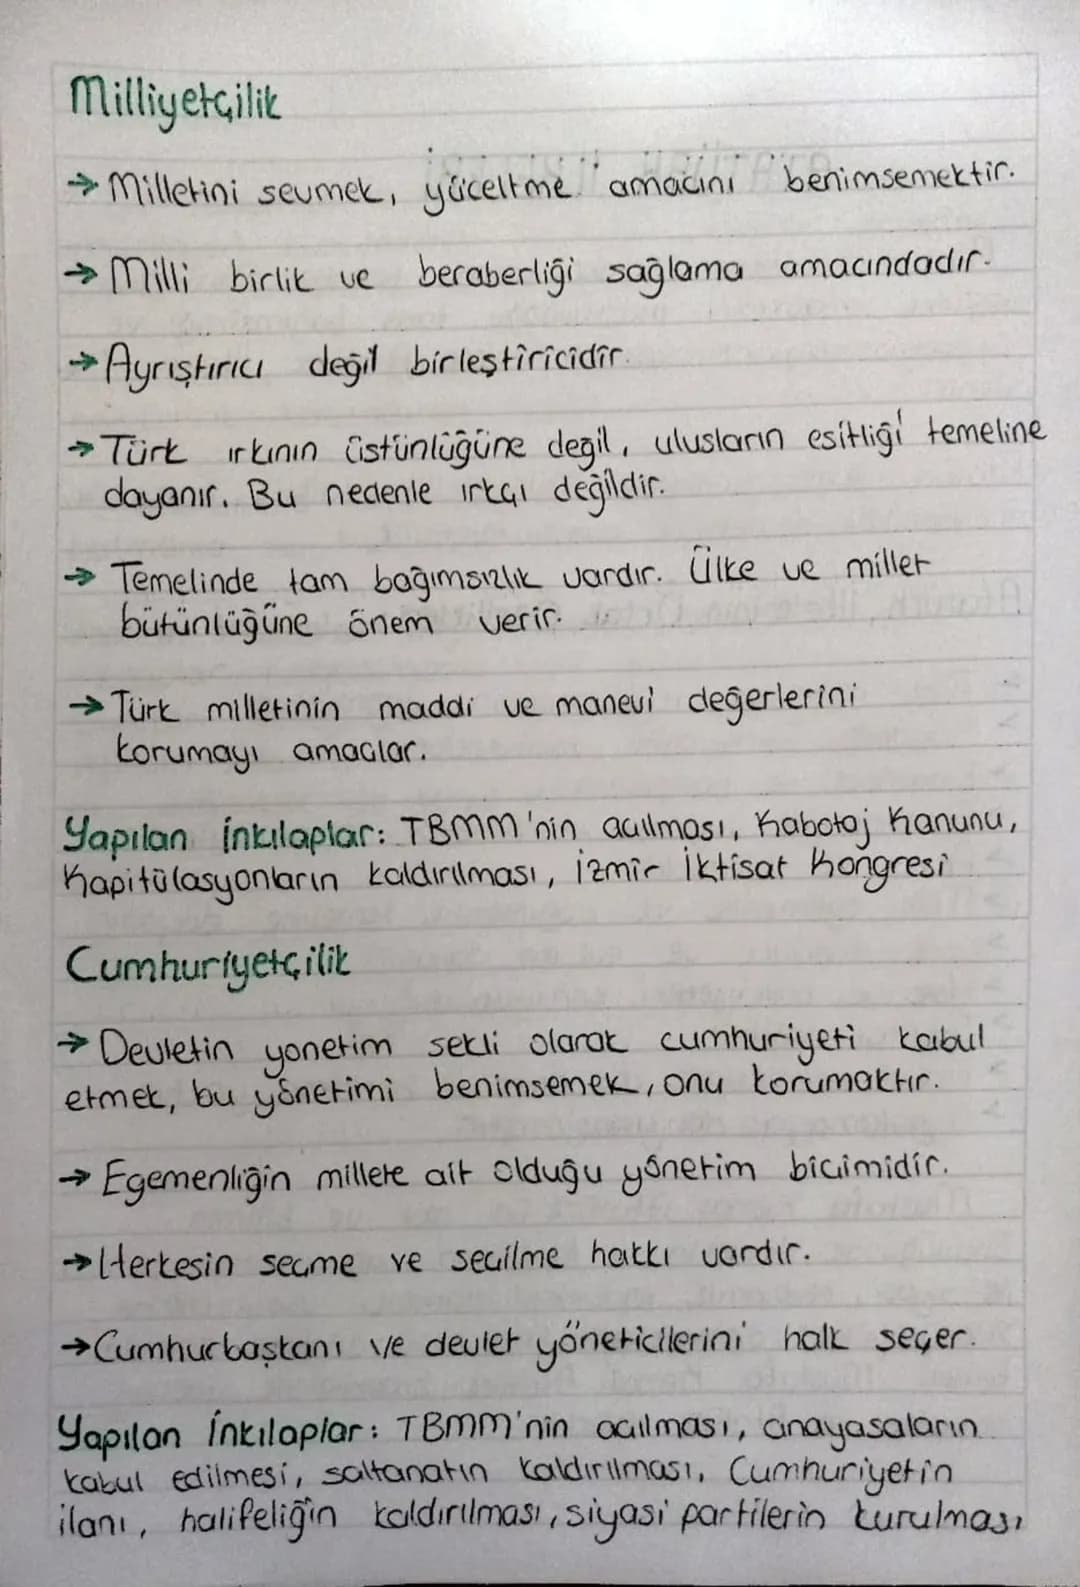 Milliyetçilik
→ Milletini sevmek, yüceltme amacını benimsemektir.
→ Milli birlik ve beraberliği sağlama amacındadır.
→ Ayrıştırıcı değil birleştiricidir.
→ Türk ırkının üstünlüğüne değil, ulusların esitliği temeline
dayanır. Bu nedenle ırkçı değildir.
→ Temelinde tam bağımsızlık vardır. Ülke ve millet
bütünlüğüne önem verir.
→ Türk milletinin maddi ve manevi değerlerini
korumayı amaçlar.
Yapılan İnkılaplar: TBMM'nin açılması, Kabotaj Kanunu,
Kapitülasyonların kaldırılması, İzmir İktisat Kongresi
Cumhuriyetçilik
→ Devletin yonetim sekli olarak cumhuriyeti kabul
etmek, bu yönetimi benimsemek, onu korumaktır.
→ Egemenliğin millete ait olduğu yönetim biçimidir.
→ Herkesin seçme ve seçilme hakkı vardır.
→ Cumhurbaşkanı ve devlet yöneticilerini halk seçer.
Yapılan İnkılaplar: TBMM'nin açılması, anayasaların
kabul edilmesi, saltanatın kaldırılması, Cumhuriyetin
ilanı, halifeliğin kaldırılması, siyasi partilerin kurulması